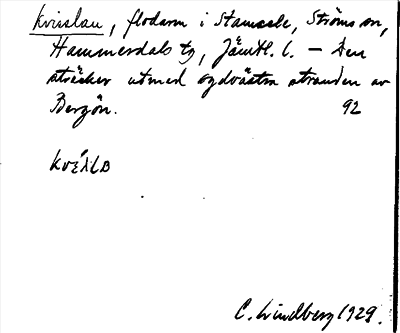 Kvislau, flodarm i Stamsele, Ströms sn,
Hammerdals tg, Jämtl. l. — Den
sträcker utmed sydvästra stranden av
Bergön. 92
C. Lindberg 1929.